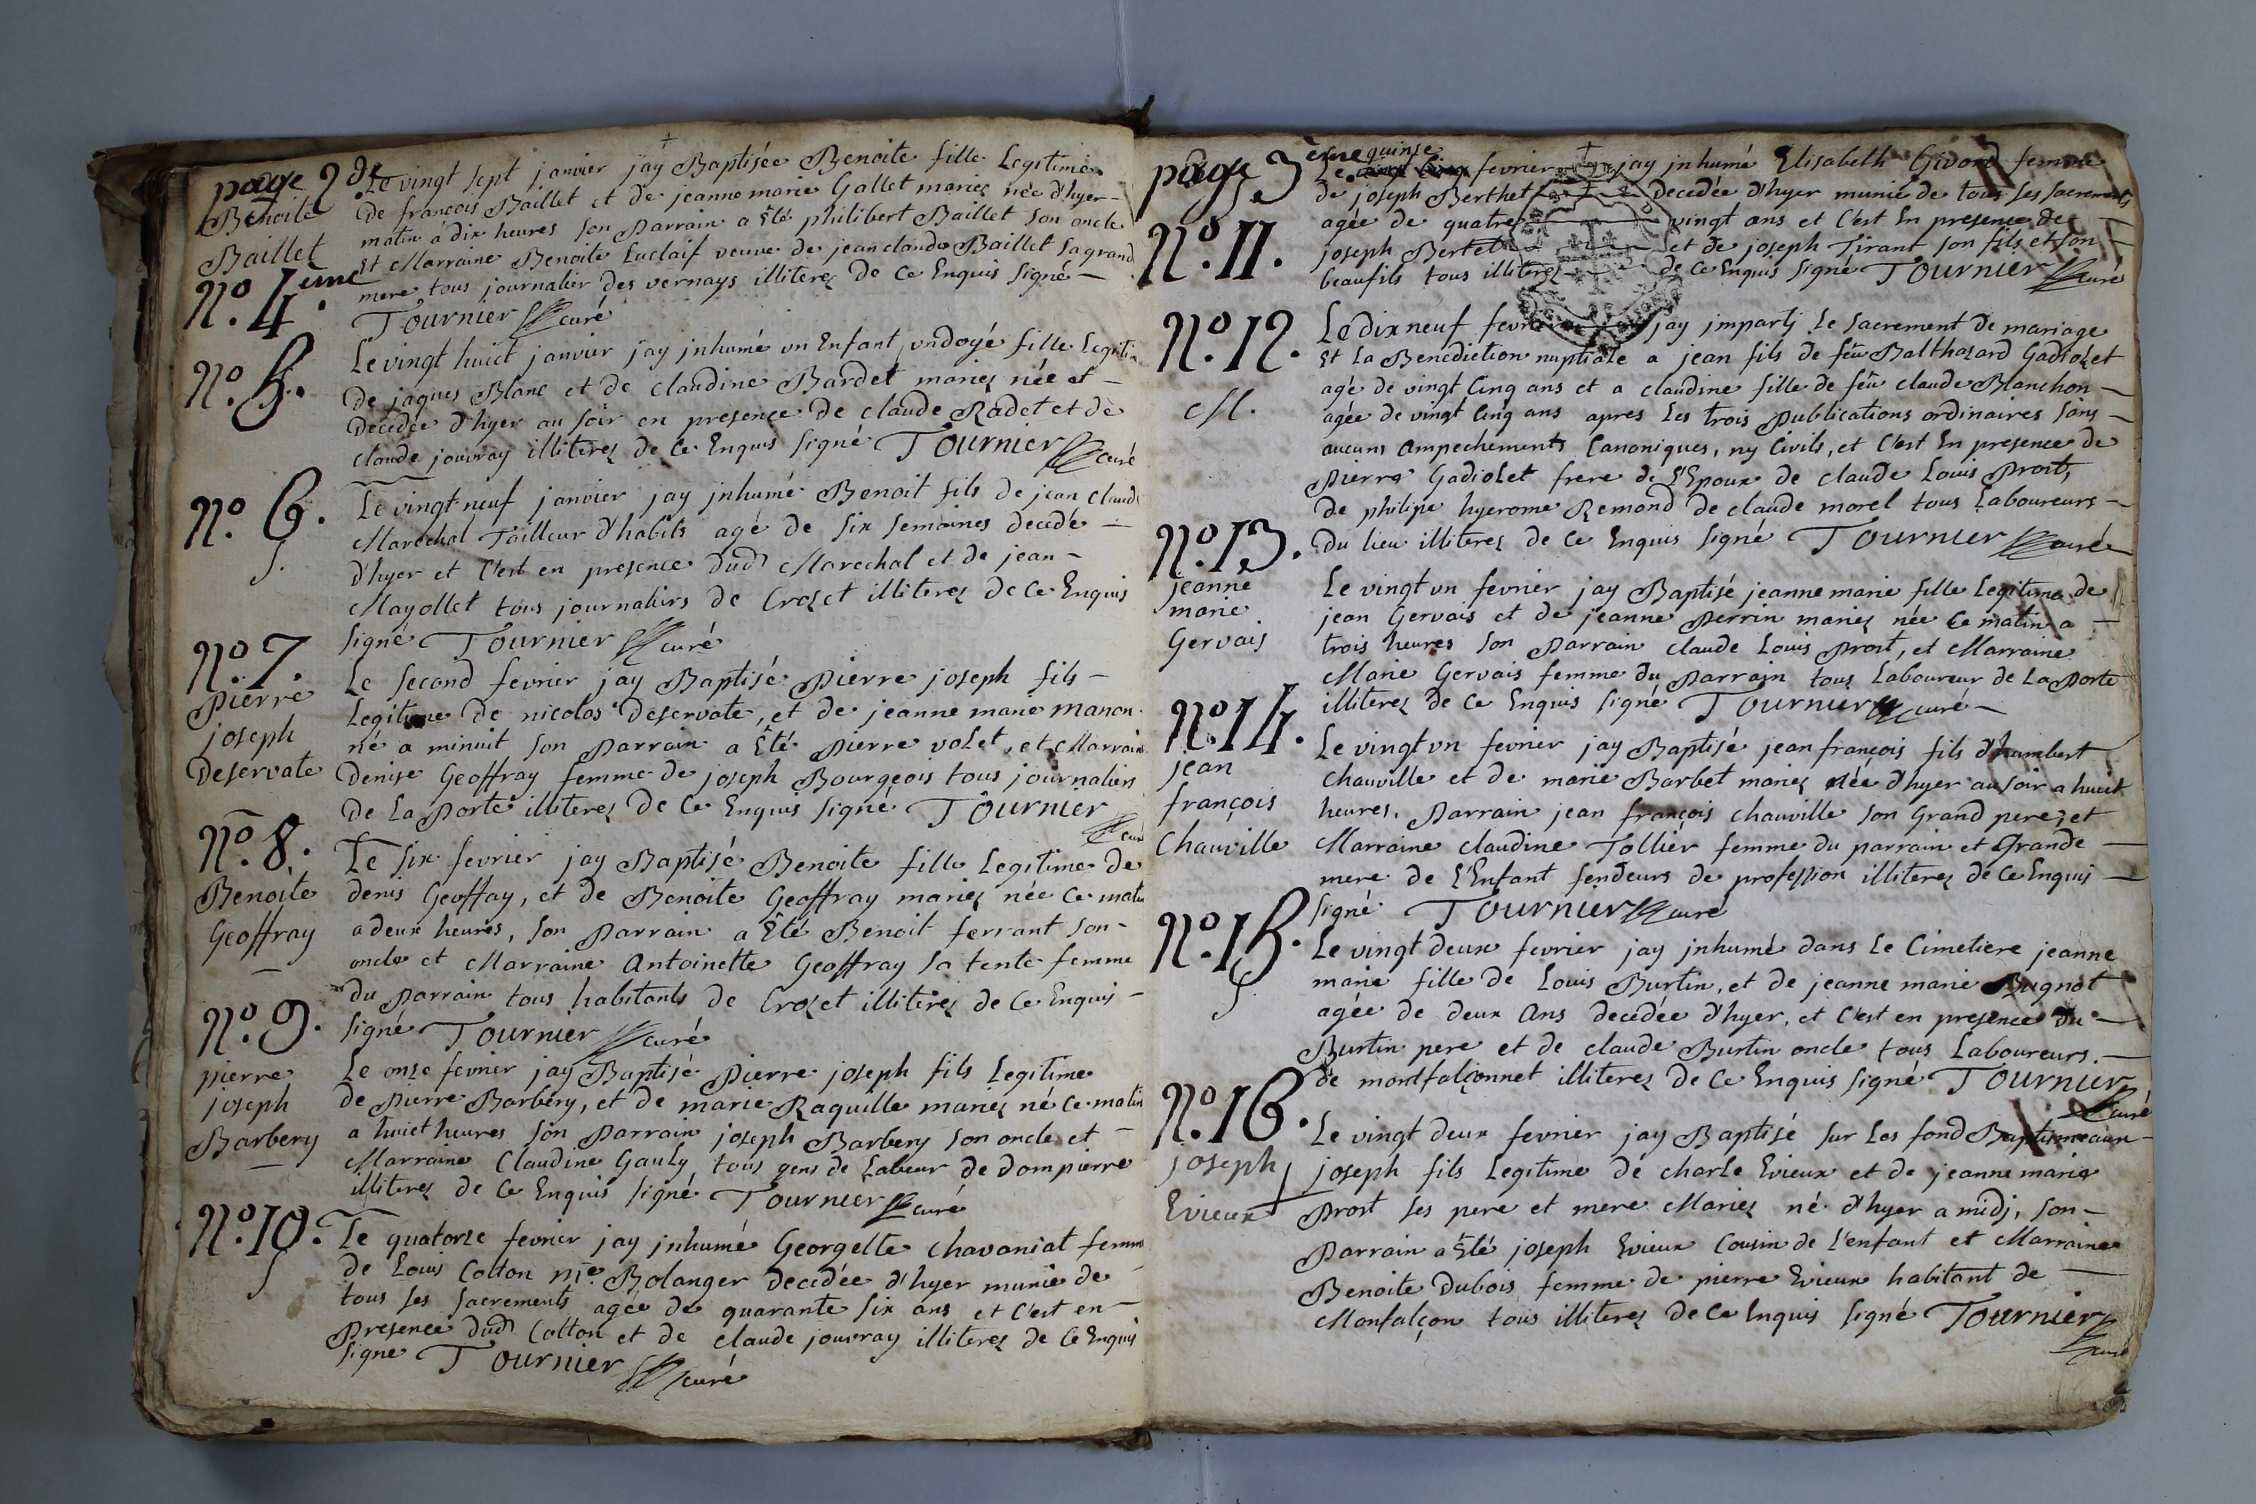 page 2de
Benoite
Baillet
No. 4eme.
Le vingt sept janvier jay Baptisée Benoite fille Legitime
de françois Baillet et de jeanne marie Gallet mariez née d'hyer
matin a dix heures son Parrain a Eté philibert Baillet son oncle
Et Marraine Benoite Luclaif veuve de jean claude Baillet sa grand
mere tous journalier des vernays illiterez de Ce Enquis signé
Tournier curé
No. 5.
Le vingt huict janvier jay jnhumé un Enfant undoyé fille Legitim
de jaques Blanc et de claudine Bardet mariez née et
decedée d'hyer au soir en presence de claude Radet et de
claude jouvray illiterez de Ce Enquis signé Tournier curé
No. 6.
S.
Le vingt neuf janvier jay jnhumé Benoit fils de jean claude
Marechal Tailleur d'habits agé de six semaines decedé
d'hyer et C'est en presence dud Marechal et de jean
Mayollet tous journaliers de Crozet illiterez de Ce Enquis
signé Tournier curé
No. 7.
Pierre
joseph
Deservate
Le second fevrier jay Baptisé Pierre joseph fils
Legitime de nicolas Deservate, et de jeanne marie manon
né a minuit son Parrain a Eté Pierre volet, et Marraine
denise Geoffray femme de joseph Bourgeois tous journaliers
de La Porte illiterez de Ce Enquis signé Tournier
curé
No. 8.
Benoite
Geoffray
Le six fevrier jay Baptisé Benoite fille Legitime de
denis Geoffay, et de Benoite Geoffray mariez née Ce matin
a deux heures, son Parrain a Eté Benoit ferrant son
oncle et Marraine Antoinette Geoffray sa tente femme
du Parrain tous habitants de Crozet illiterez de Ce Enquis
signé Tournier curé
No. 9.
pierre
joseph
Barbery
Le onze fevrier jay Baptisé Pierre joseph fils Legitime
de Pierre Barbery, et de marie Raquille mariez né Ce matin
a huict heures son Parrain joseph Barbery son oncle et
Marraine Claudine Gauly tous gens de Labeur de dompierre
illiterez de Ce Enquis signé Tournier curé
No. 10.
S
Le quatorze fevrier jay jnhumé Georgette chavaniat femme
de Louis Cotton me Bolanger decedée d'hyer munie de
tous ses sacrements agée de quarante six ans et C'est en
Presence dud Cotton et de claude jouvray illiterez de Ce Enquis
signe Tournier curé
page 3eme
No. 11.
quinse
Le fevrier jay jnhumé Elisabeth Givord femme
de joseph Berthet decedée d'hyer munie de tous ses sacrements
agée de quatre vingt ans et C'est En presence de
joseph Bertet et de joseph Tirant son fils et son
beaufils tous illiterez de Ce Enquis signé Tournier curé
No. 12.
M.
Le dix neuf fevrier jay jmparty Le sacrement de mariage
Et La Benediction nuptiale a jean fils de feu Balthazard Gadiolet
agé de vingt Cinq ans et a claudine fille de feu claude Blanchon
agée de vingt Cinq ans apres Les trois Publications ordinaires sans
aucuns Ampechements Canoniques, ny Civils, et C'est En presence de
Pierre Gadiolet frere de L'Epoux de claude Louis Prost,
de philipe hyerome Remond de claude morel tous Laboureurs
du lieu illiterez de Ce Enquis signé Tournier curé
No. 13.
jeanne
marie
Gervais
Le vingt un fevrier jay Baptisé jeanne marie fille Legitime de
jean Gervais et de jeanne Perrin mariez née Ce matin a
trois heures son Parrain claude Louis Prost, et Marraine
Marie Gervais femme du Parrain tous Laboureur de La Porte
illiterez de Ce Enquis signé Tournier curé
No. 14.
jean
françois
Chauville
Le vingt un fevrier jay Baptisé jean françois fils d'humbert
chauville et de marie Barbet mariez née d'hyer au soir a huict
heures. Parrain jean françois chauville son Grand pere, et
Marraine claudine Tollier femme du parrain et Grande
mere de L'Enfant fendeurs de profession illiterez de Ce Enquis
signé Tournier curé
No. 15.
S.
Le vingt deux fevrier jay jnhumé dans Le Cimetiere jeanne
marie fille de Louis Burtin, et de jeanne marie Bugnot
agée de deux Ans decedée d'hyer, et C'est en presence du
Burtin pere et de claude Burtin oncle tous Laboureurs.
de montfalçonnet illiterez de Ce Enquis signé Tournier
curé
No. 16.
joseph
Evieux
Le vingt deux fevrier jay Baptisé sur Les fond Baptismeaux
joseph fils Legitime de charle Evieux et de jeanne marie
Prost ses pere et mere Mariez né d'hyer a midj, son
Parrain a Eté joseph Evieux Cousin de L'enfant et Marraine
Benoite Dubois femme de pierre Evieux habitant de
Monfalçon tous illiterez de Ce Enquis signé Tournier
curé